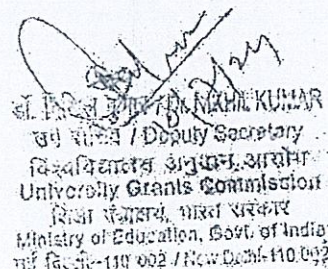 डॉ. कुमार / Dr. MAHE KUMAR
उप सचिव / Deputy Secretary
विश्वविद्यालय अनुदान आयोग
University Grants Commission
शिक्षा मंत्रालय, भारत सरकार
Ministry of Education, Govt. of India
नई दिल्ली-110 002 / New Delhi-110 002